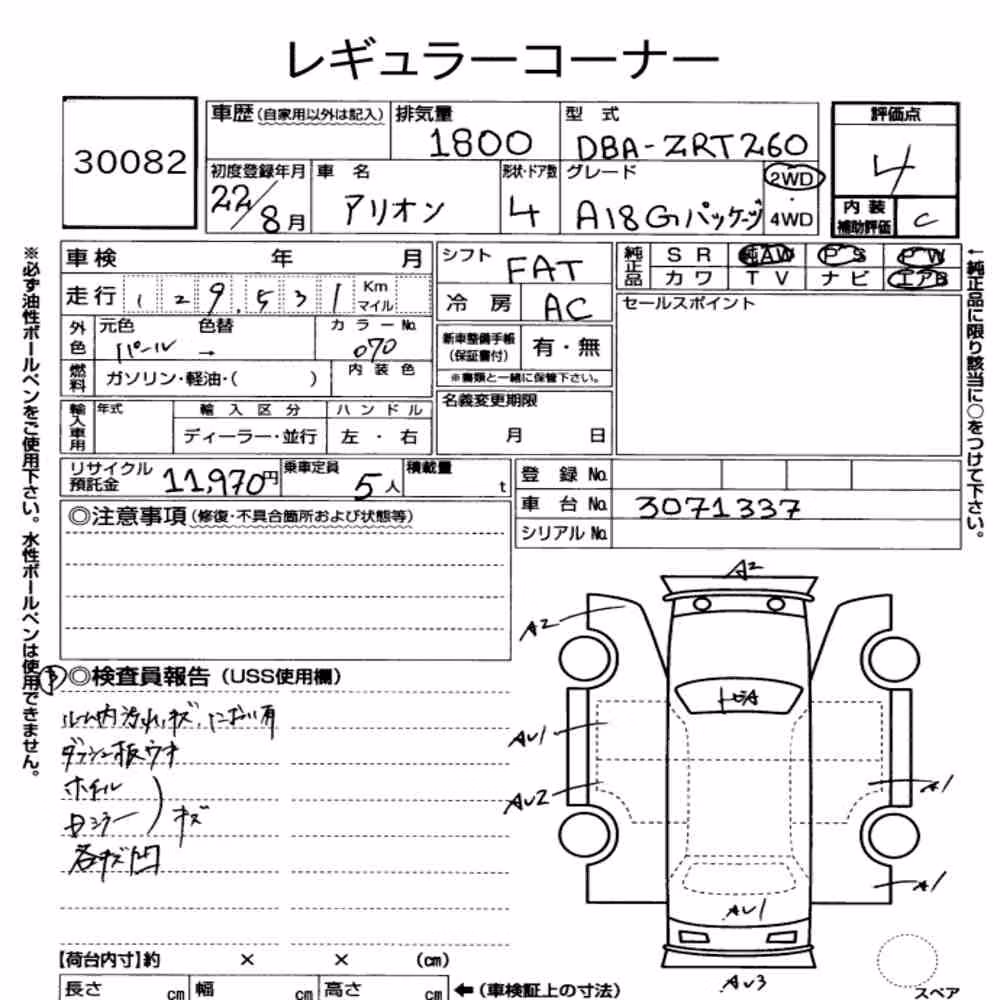 レギュラーコーナー
30082
車歴 (自家用以外は記入)
排気量
1800
型式
DBA-ZRT260
評価点
4
初度登録年月
22/8月
車名
アリオン
形状・ドア数
4
グレード
A18Gパッケージ
2WD
・
4WD
内装
補助評価
C
車検 年 月
走行 129,531 Km
マイル
シフト
FAT
冷房
AC
純正品
SR 純AW PS PW
カワ TV ナビ エアB
外色
元色 色替
パール →
カラーNo.
070
燃料
ガソリン・軽油・( )
内装色
新車整備手帳
(保証書付)
有・無
※書類と一緒に保管下さい。
セールスポイント
輸入車用
年式
輸入区分
ディーラー・並行
ハンドル
左・右
名義変更期限
月 日
リサイクル
預託金
11,970円
乗車定員
5人
積載量
t
登録No.
車台No. 3071337
シリアルNo.
◎注意事項 (修復・不具合箇所および状態等)
◎検査員報告 (USS使用欄)
ルーム内汚れ、キズ、におい有
ダッシュ板ウキ
ホイル
ミラー
キズ
各キズ凹
A2
A2
AU1
AU2
A1
A1
AU1
AU3
【荷台内寸】約 × × (cm)
長さ cm 幅 cm 高さ cm
←(車検証上の寸法)
スペア
※必ず油性ボールペンをご使用下さい。水性ボールペンは使用できません。
←純正品に限り該当に○をつけて下さい。